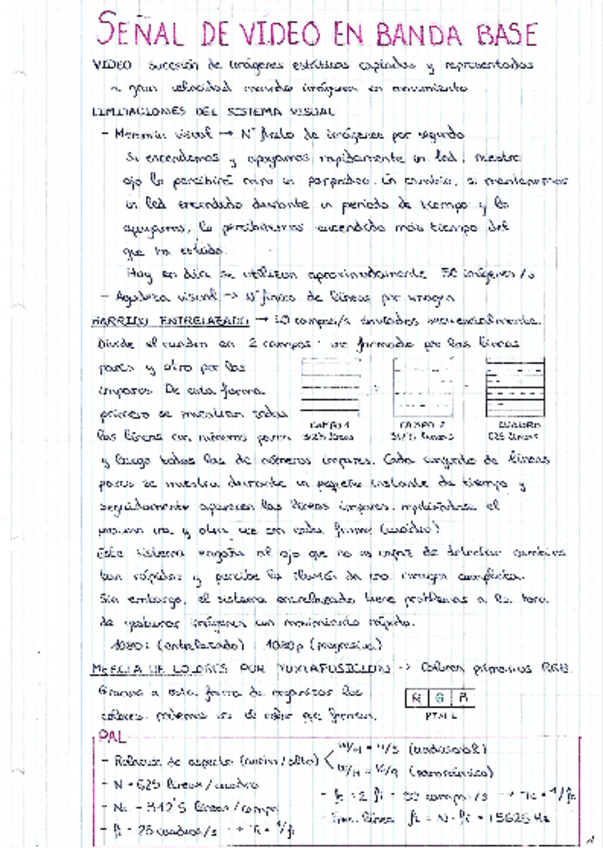 SEÑAL DE VIDEO EN BANDA BASE
VIDEO sucesión de imágenes estáticas captadas y representadas
a gran velocidad creando imágenes en movimiento
LIMITACIONES DEL SISTEMA VISUAL
- Memoria visual → Nº finito de imágenes por segundo
Si encendemos y apagamos rapidamente un led, nuestro
ojo lo percibirá como un parpadeo. En cambio, si mantenemos
un led encendido durante un periodo de tiempo y lo
apagamos, lo percibiremos encendido más tiempo del
que ha estado.
Hoy en día se utilizan aproximadamente 50 imágenes/s
- Agudeza visual → Nº finito de líneas por imagen
BARRIDO ENTRELAZADO → 50 campos/s enviados secuencialmente.
Divide el cuadro en 2 campos: uno formado por las líneas
pares y otro por las
impares. De esta forma
primero se muestran todas
las líneas con números pares
CAMPO 1 CAMPO 2 CUADRO
312'5 líneas 312'5 líneas 625 líneas
y luego todas las de números impares. Cada conjunto de líneas
pares se muestra durante un pequeño instante de tiempo y
seguidamente aparecen las líneas impares, repitiéndose el
proceso una y otra vez con cada frame (cuadro)
Este sistema engaña al ojo que no es capaz de detectar cambios
tan rápidos y percibe la ilusión de una imagen completa.
Sin embargo, el sistema entrelazado tiene problemas a la hora
de gestionar imágenes con movimiento rápido.
1080i (entrelazado) 1080p (progresivo)
MEZCLA DE COLORES POR YUXTAPOSICIÓN → Colores primarios RGB
Gracias a esta forma de organizar los
colores, vemos de color que forman.
R G B
PIXEL
PAL
- Relación de aspecto (ancho/alto) W/H = 4/3 (tradicional)
W/H = 16/9 (panorámico)
- N = 625 líneas/cuadro
- Nc = 312'5 líneas/campo
- fi = 25 cuadros/s → Ti = 1/fi
- fc = 2·fi = 50 campos/s → Tc = 1/fc
- Frec. línea fL = N·fi = 15625 Hz